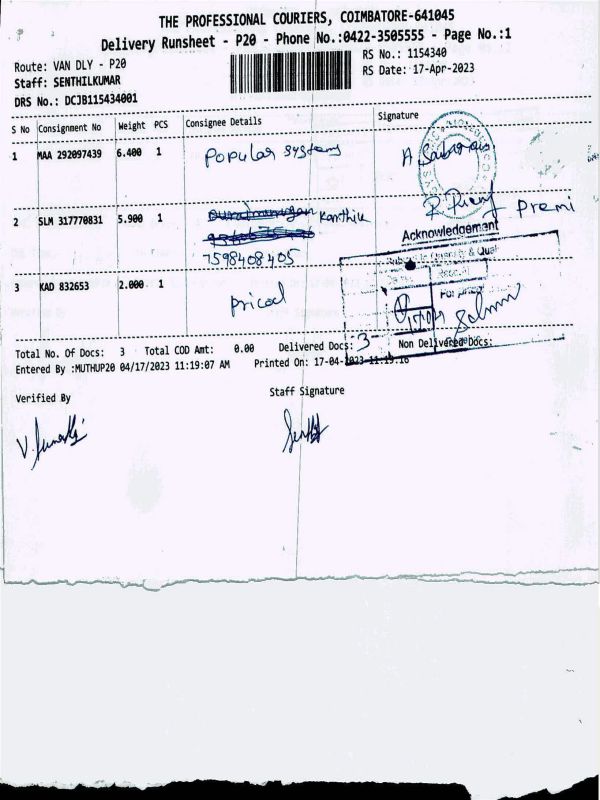 THE PROFESSIONAL COURIERS, COIMBATORE-641045
Delivery Runsheet - P20 - Phone No.:0422-3505555 - Page No.:1
Route: VAN DLY - P20
RS No.: 1154340
Staff: SENTHILKUMAR
RS Date: 17-Apr-2023
DRS No.: DCJB115434001
S No Consignment No Weight PCS Consignee Details Signature
1 MAA 292097439 6.400 1 Popular systems
2 SLM 317770831 5.900 1 Karthik
Premi
7598408405
Acknowledgement
3 KAD 832653 2.000 1 Pricol
Total No. Of Docs: 3 Total COD Amt: 0.00 Delivered Docs: 3 Non Delivered Docs:
Entered By :MUTHUP20 04/17/2023 11:19:07 AM Printed On: 17-04-2023 11:19:16
Verified By Staff Signature